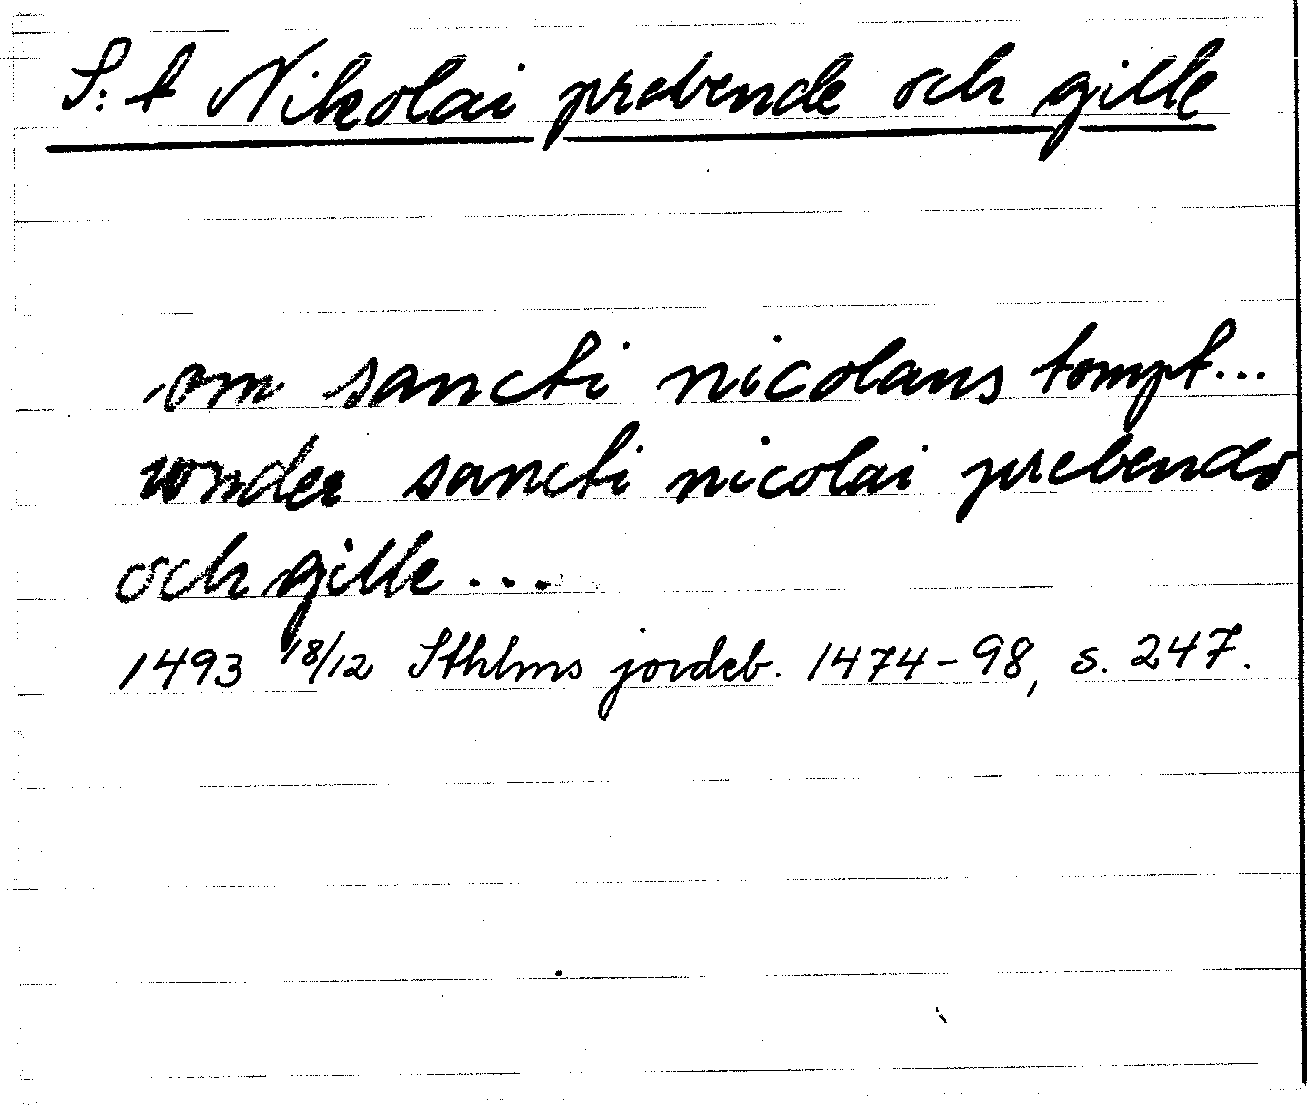 S:t Nikolai prebende och gille
om sancti nicolaus tompt...
wnder sancti nicolai prebendo
och gille...
1493 18/12 Sthlms jordeb. 1474-98, s. 247.